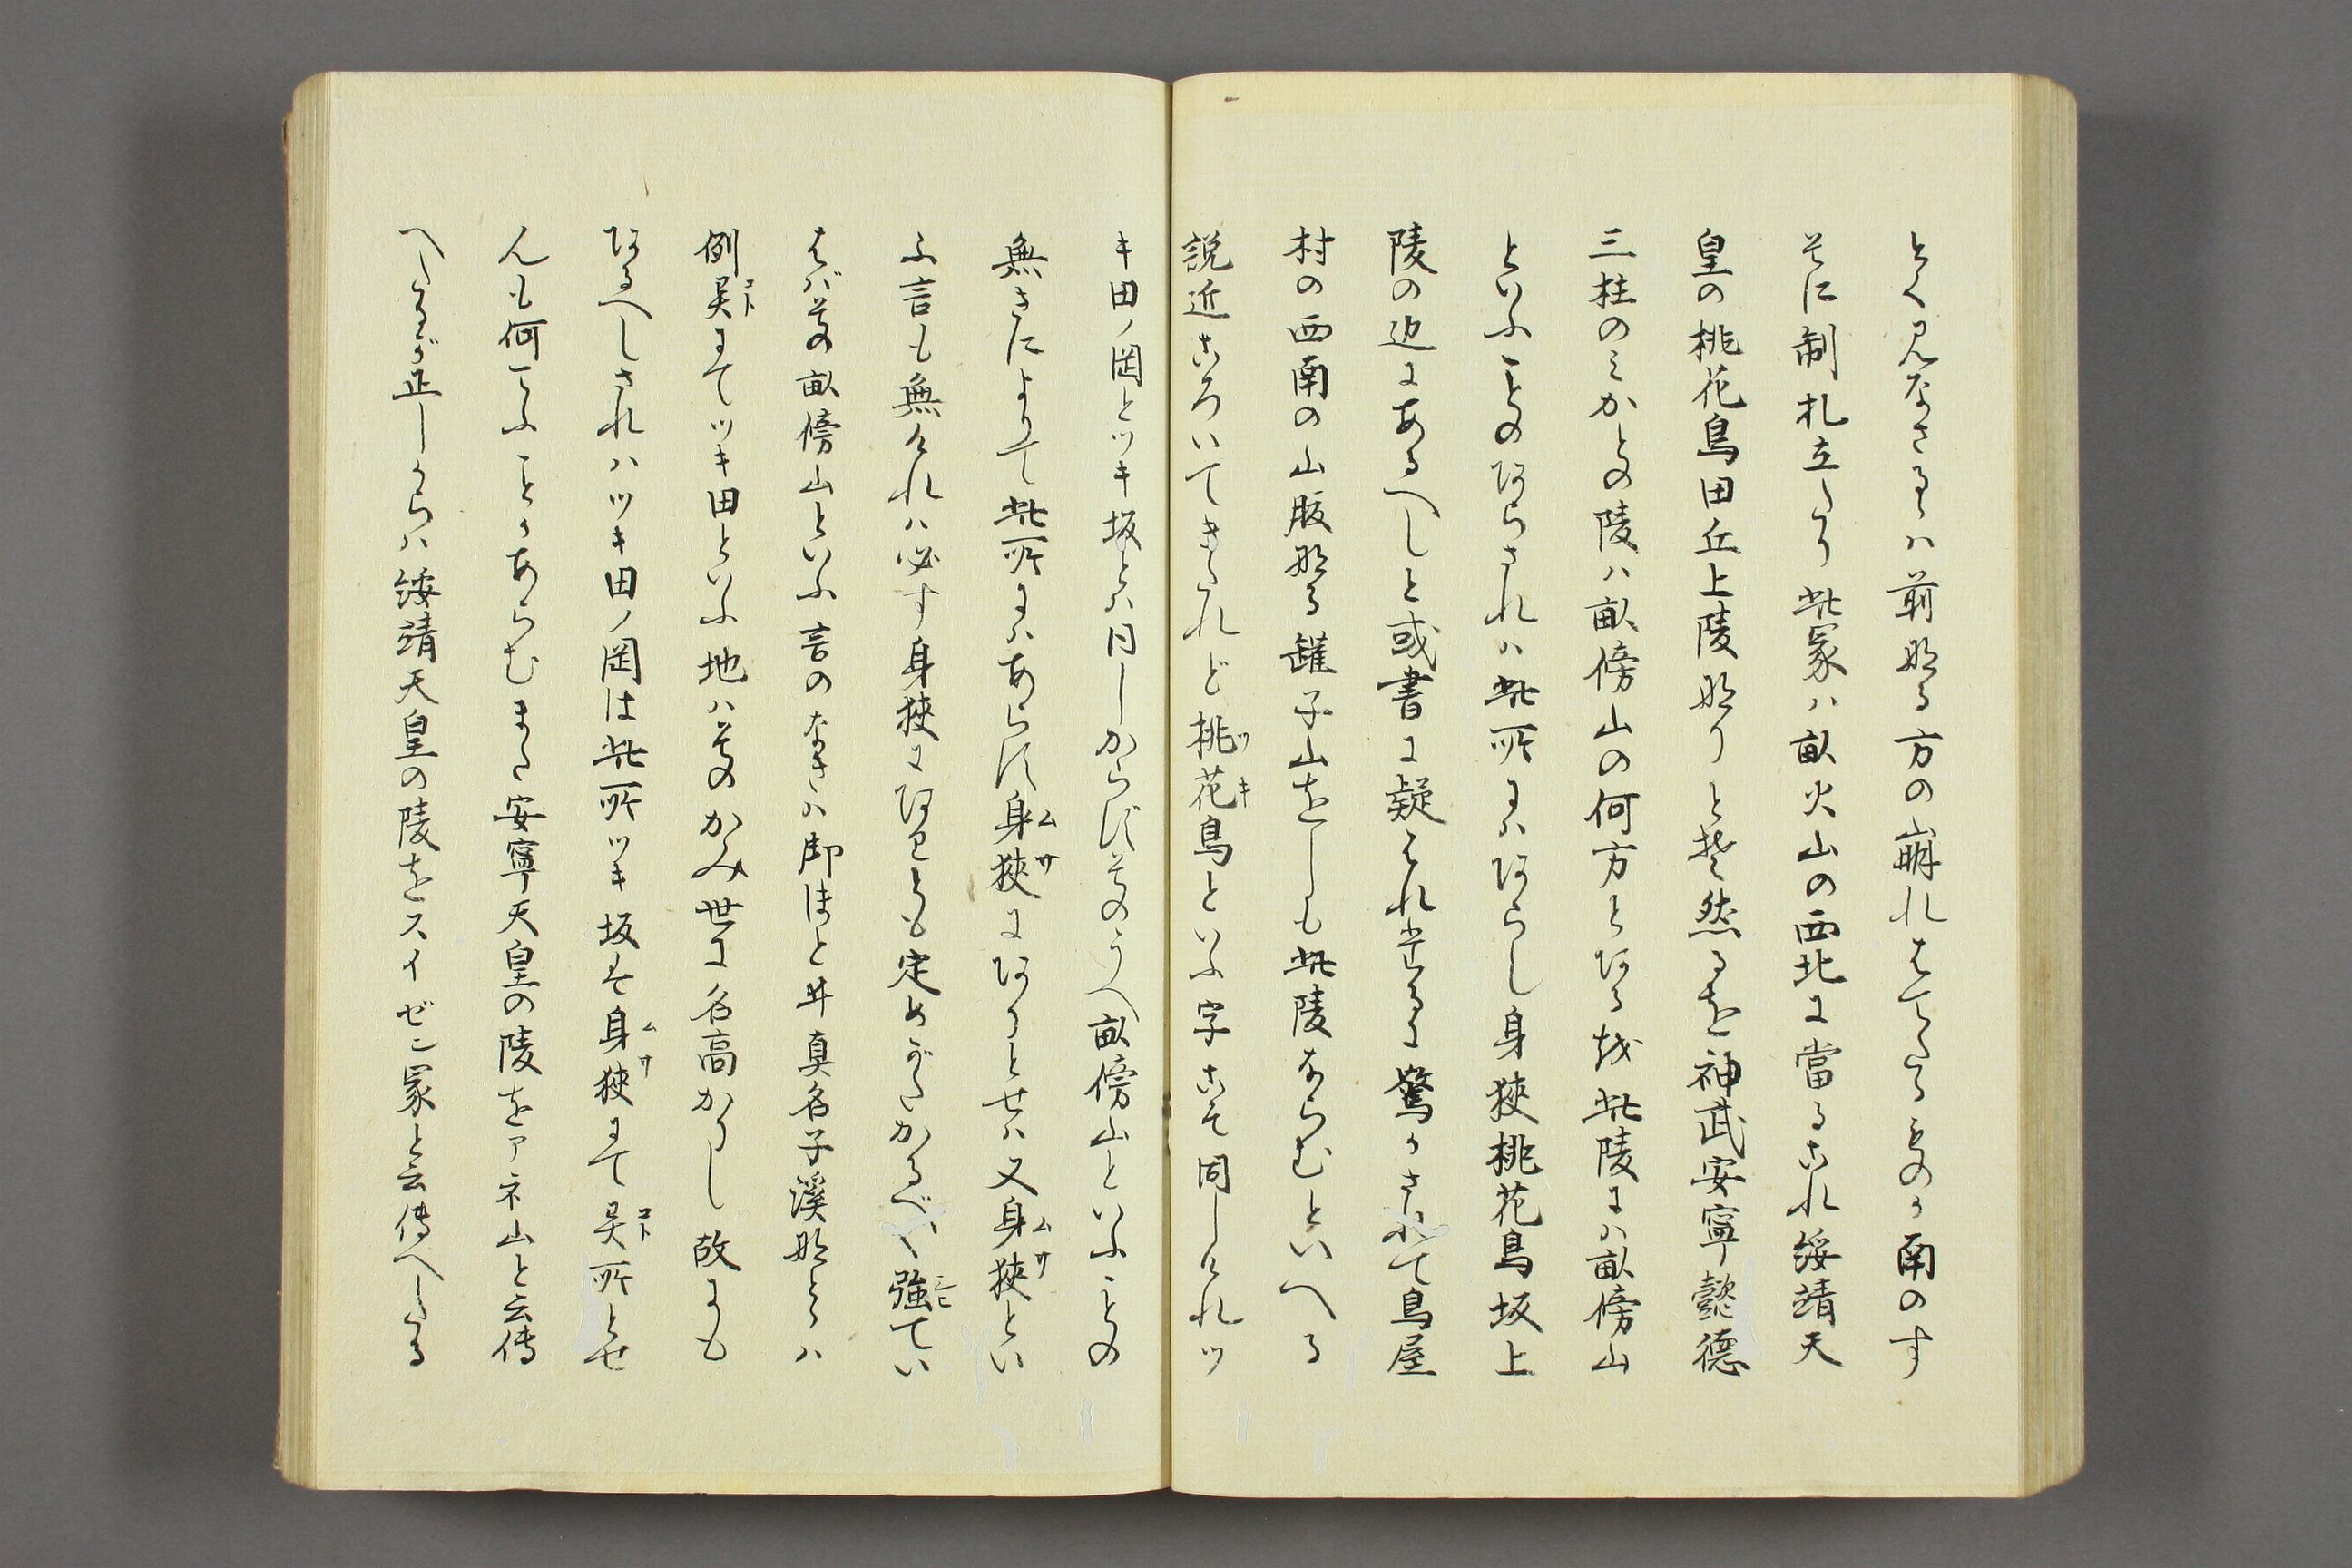 とく見なさるゝハ前なる方の崩れはてたるものゝ南のす
そに制札立たり此冢ハ畝火山の西北に當るこれ綏靖天
皇の桃花鳥田丘上陵なりとぞ然るを神武安寧懿德
三柱のみかとの陵ハ畝傍山の何方とある故此陵にハ畝傍山
といふことのあらされハ此所にハあらし身狹桃花鳥坂上
陵の迹にあるへしと或書に疑はれたるに驚かされて鳥屋
村の西南の山腹なる鑵子山をしも此陵ならむといへる
説近ころいてきたれど桃花鳥といふ字こそ同しけれツ
キ田ノ岡とツキ坂とハ同しからずそのうへ畝傍山といふことの
無きによりて此所にハあらず身狹にありとせハ又身狹とい
ふ言も無けれハ必す身狹にありとも定めがたかるべく強てい
はバその畝傍山といふ言のなきハ御ほと井真名子溪なとゝハ
例異にてツキ田といふ地ハそのかみ世に名高かりし故にも
あるへしされハツキ田ノ岡は此所ツキ坂は身狹にて異所とせ
んも何てふことかあらむまた安寧天皇の陵をアネ山と云傳
へたるが正しからハ綏靖天皇の陵をスイゼン冢と云傳へたる